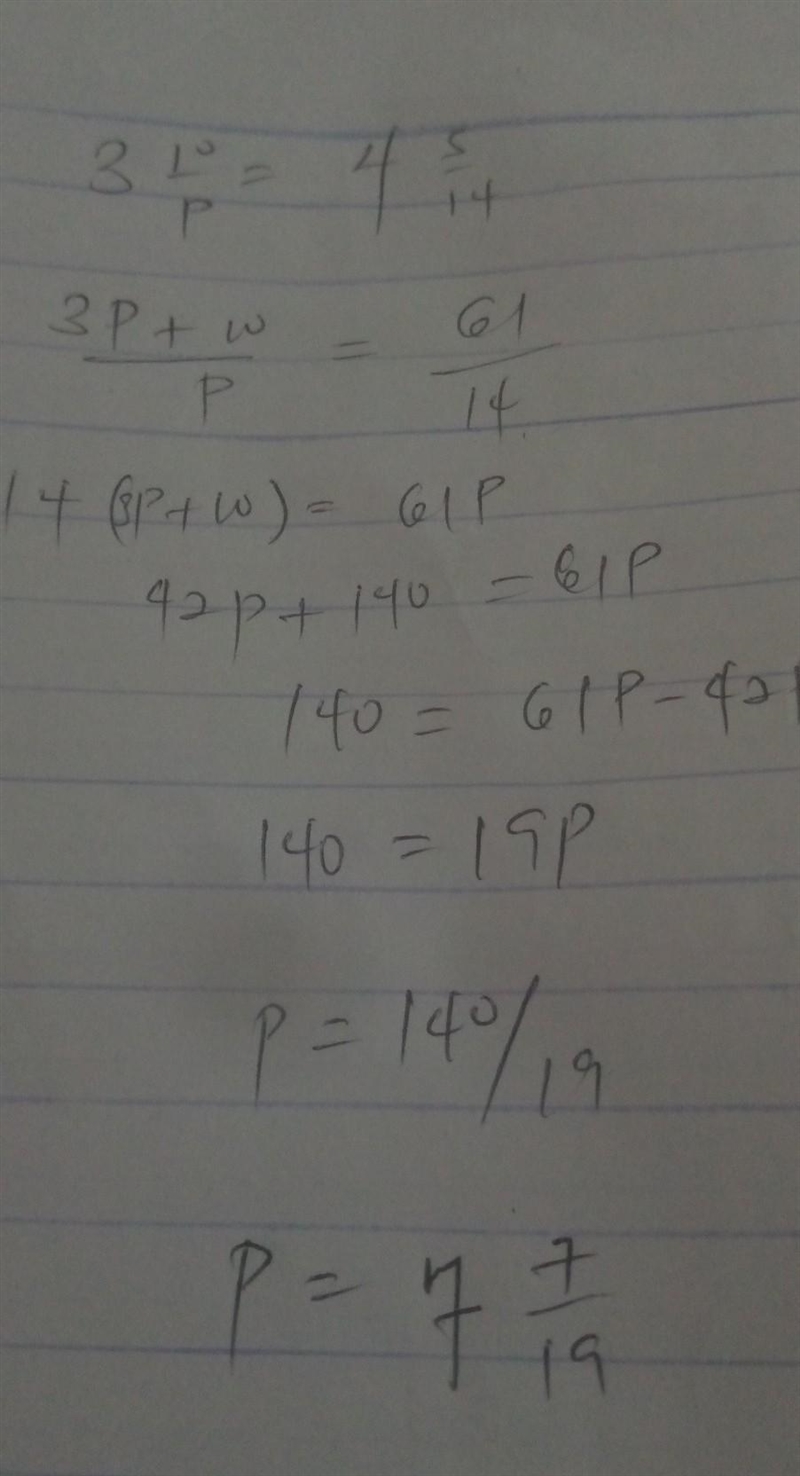 3 10/P = 4 5/14
3P + 10 / P = 61 / 14
14 (3P + 10) = 61P
42P + 140 = 61P
140 = 61P - 42P
140 = 19P
P = 140/19
P = 7 7/19